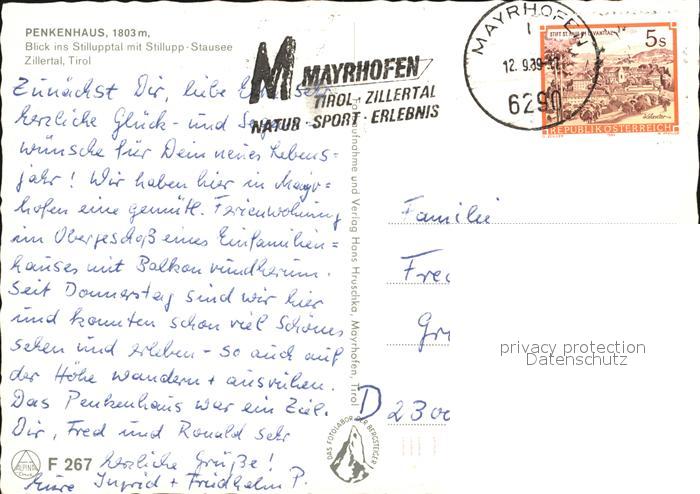 PENKENHAUS, 1803 m,
Blick ins Stillupptal mit Stillupp-Stausee
Zillertal, Tirol
M MAYRHOFEN
TIROL - ZILLERTAL
NATUR - SPORT - ERLEBNIS
MAYRHOFEN
1
12. 9. 89
6290
5s
REPUBLIK ÖSTERREICH
Zunächst Dir, liebe sehr
herzliche Glück- und
wünsche für Dein neues Lebens=
jahr! Wir haben hier in Mayr=
hofen eine gemütl. Ferienwohnung
im Obergeschoß eines Einfamilien=
hauses mit Balkon rundherum.
Seit Donnerstag sind wir hier
und konnten schon viel Schönes
sehen und erleben - so auch auf
der Höhe wandern + ausruhen.
Das Penkenhaus war ein Ziel.
Dir, Fred und Ronald sehr
herzliche Grüße!
Eure Ingrid + Friedhelm P.
F 267
Fotoaufnahme und Verlag Hans Hruschka, Mayrhofen, Tirol
DAS FOTOLABOR DER BERGSTEIGER
Familie
Fred
D 2300
privacy protection
Datenschutz